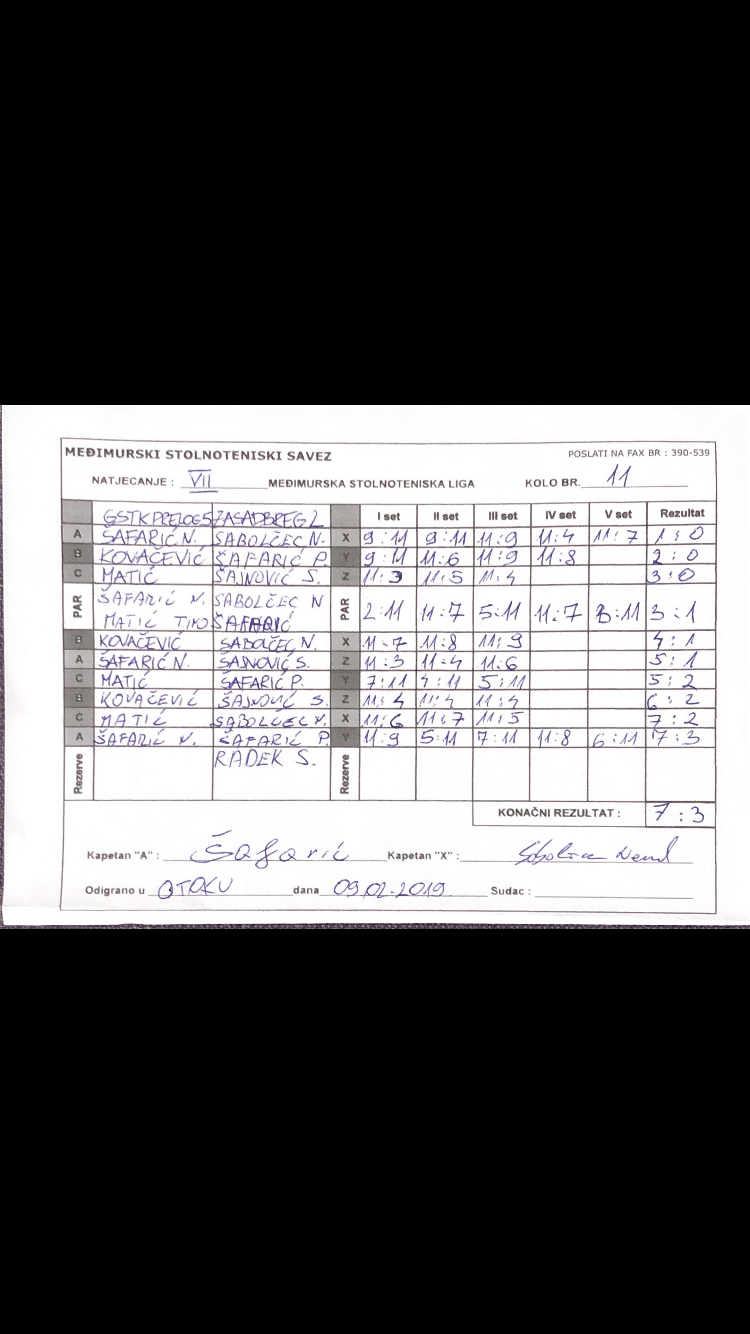 MEĐIMURSKI STOLNOTENISKI SAVEZ POSLATI NA FAX BR : 390-539
NATJECANJE : VII MEĐIMURSKA STOLNOTENISKA LIGA KOLO BR. 11
GSTK PRELOG 5 ZASADBREG 2 I set II set III set IV set V set Rezultat
A ŠAFARIĆ N. SABOLČEC N. X 9:11 9:11 11:9 11:4 11:7 1:0
B KOVAČEVIĆ ŠAFARIĆ P. Y 9:11 11:6 11:9 11:8 2:0
C MATIĆ ŠAJNOVIĆ S. Z 11:3 11:5 11:4 3:0
PAR ŠAFARIĆ N. SABOLČEC N PAR 2:11 11:7 5:11 11:7 8:11 3:1
MATIĆ TIHO ŠAFARIĆ
B KOVAČEVIĆ SABOLČEC N. X 11-7 11:8 11:9 4:1
A ŠAFARIĆ N. ŠAJNOVIĆ S. Z 11:3 11-4 11:6 5:1
C MATIĆ ŠAFARIĆ P. Y 7:11 4:11 5:11 5:2
B KOVAČEVIĆ ŠAJNOVIĆ S. Z 11:4 11:4 11:4 6:2
C MATIĆ SABOLČEC N. X 11:6 11:7 11:5 7:2
A ŠAFARIĆ N. ŠAFARIĆ P. Y 11:9 5:11 7:11 11:8 6:11 7:3
Rezerve RADEK S. Rezerve
KONAČNI REZULTAT : 7:3
Kapetan "A" : Šafarić Kapetan "X" :
Odigrano u OTOKU dana 09.02.2019 Sudac :